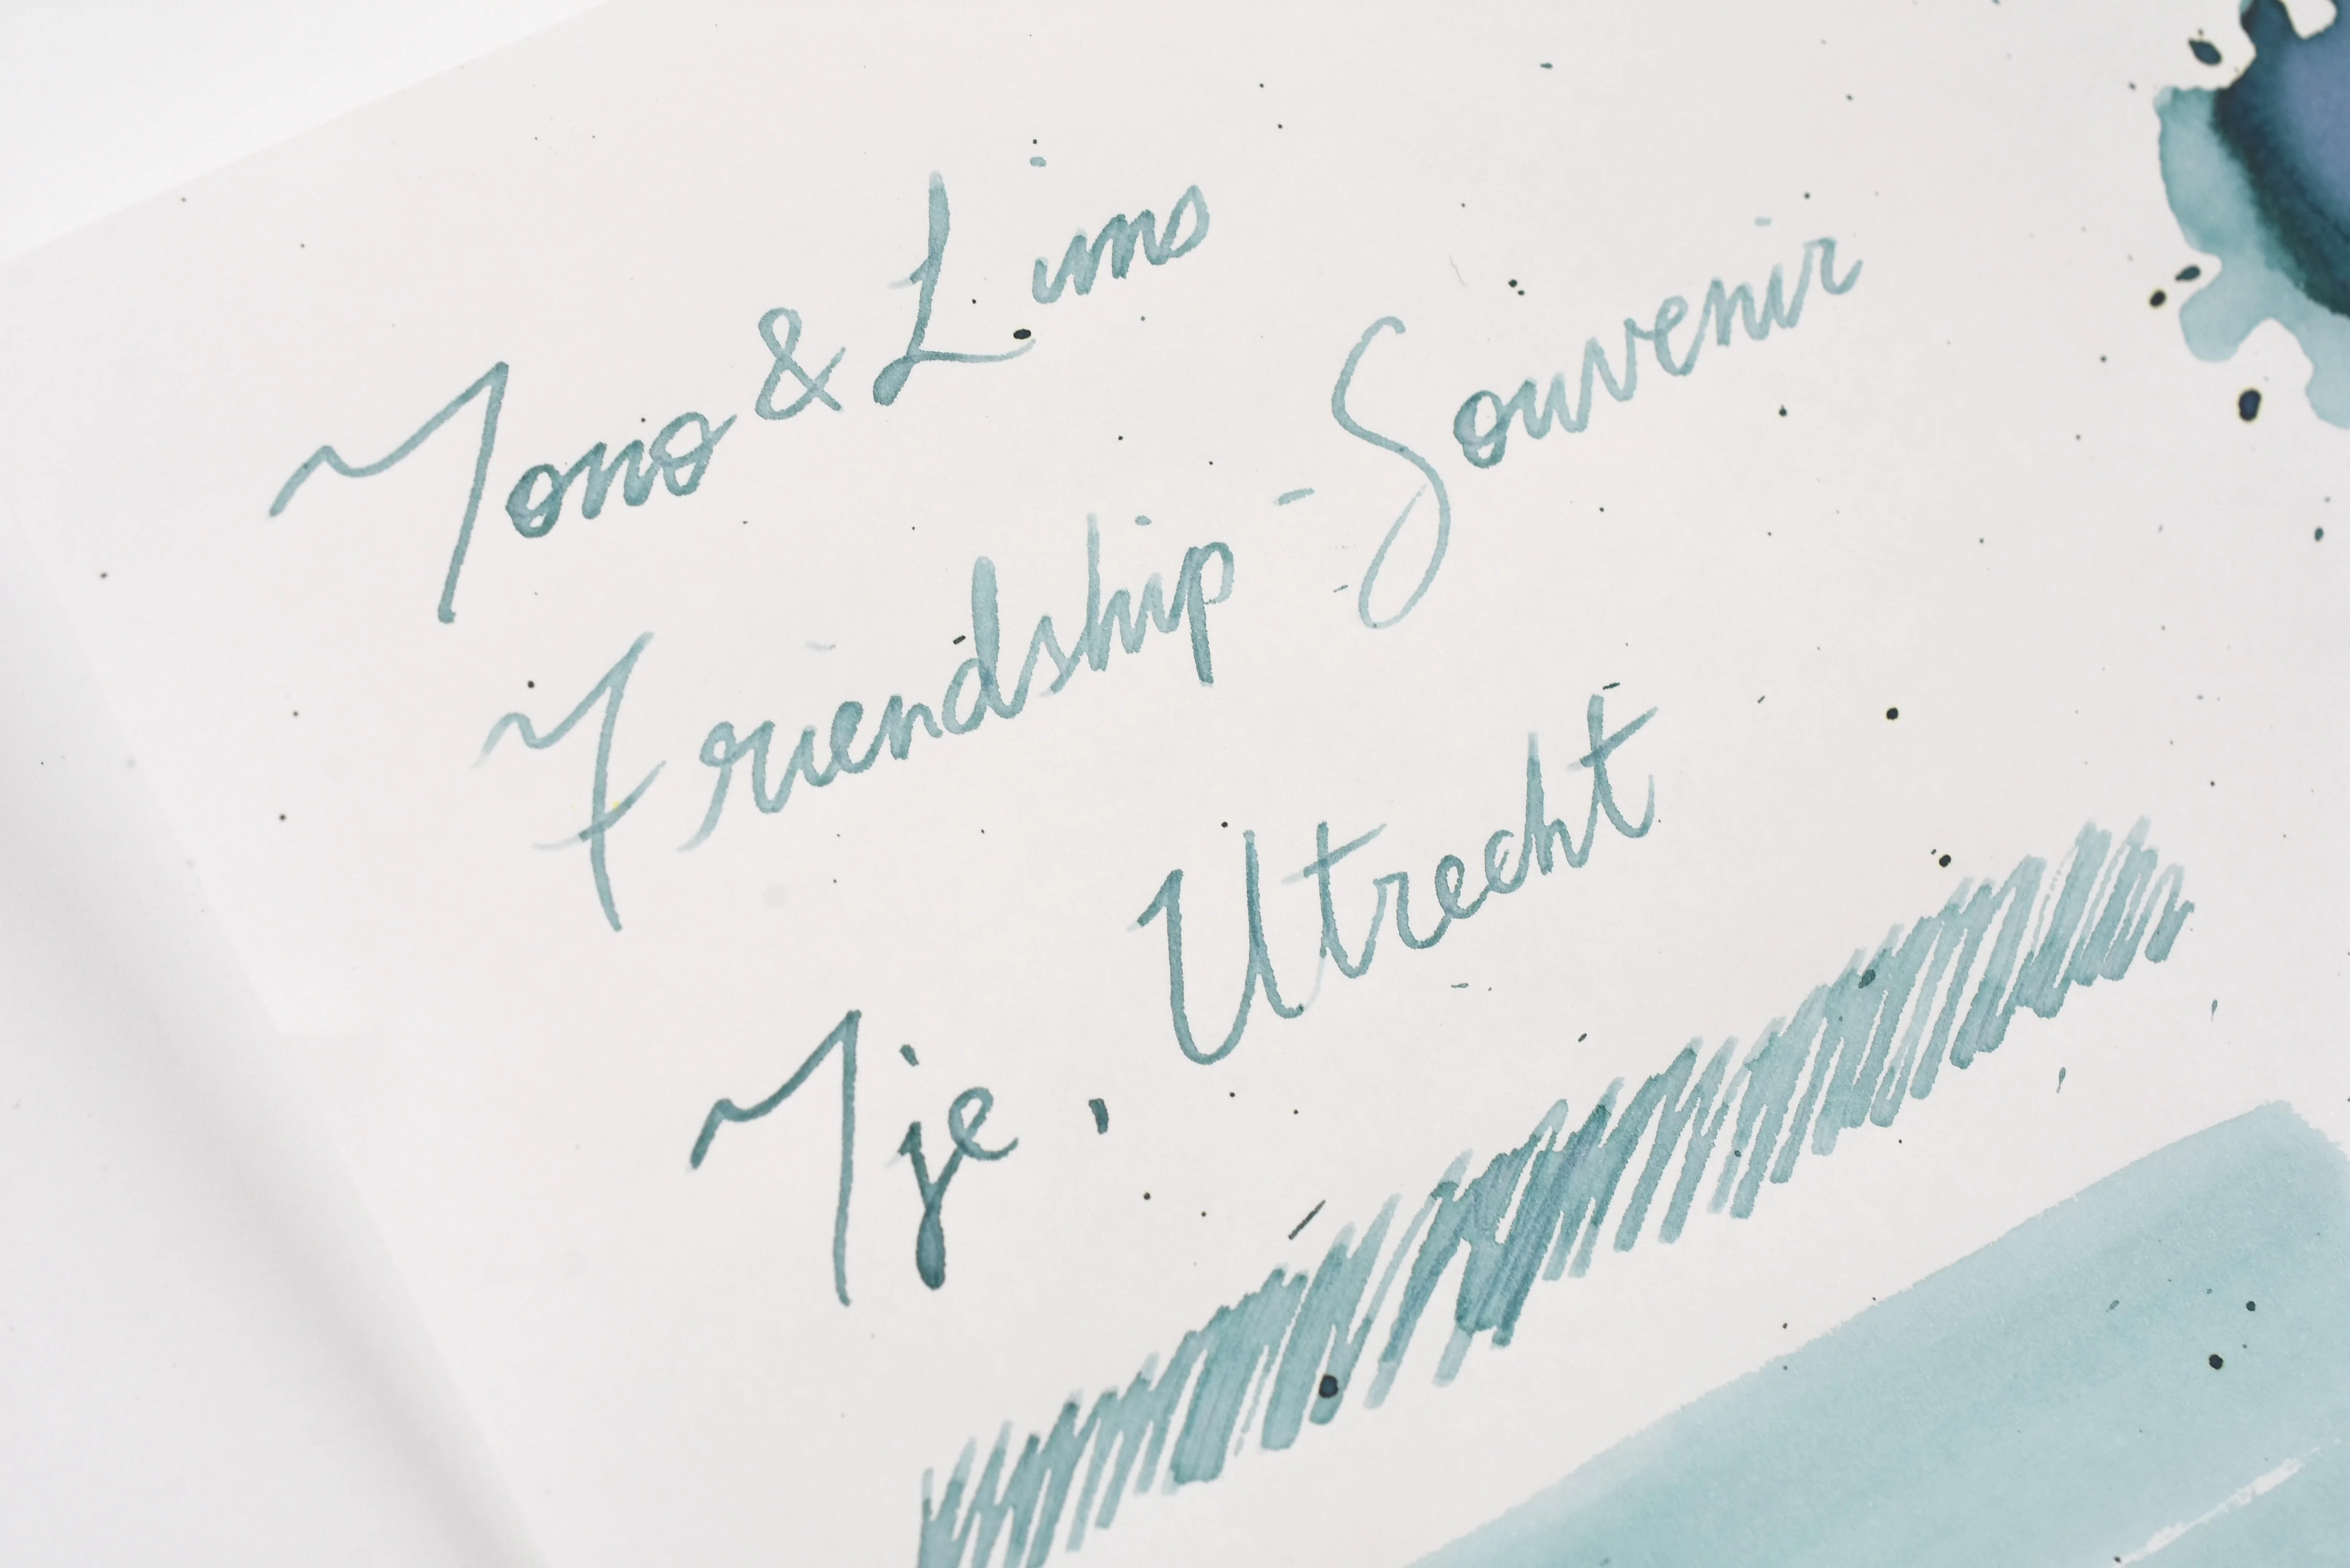 Tono & Lims
Friendship - Souvenir
Tje. Utrecht